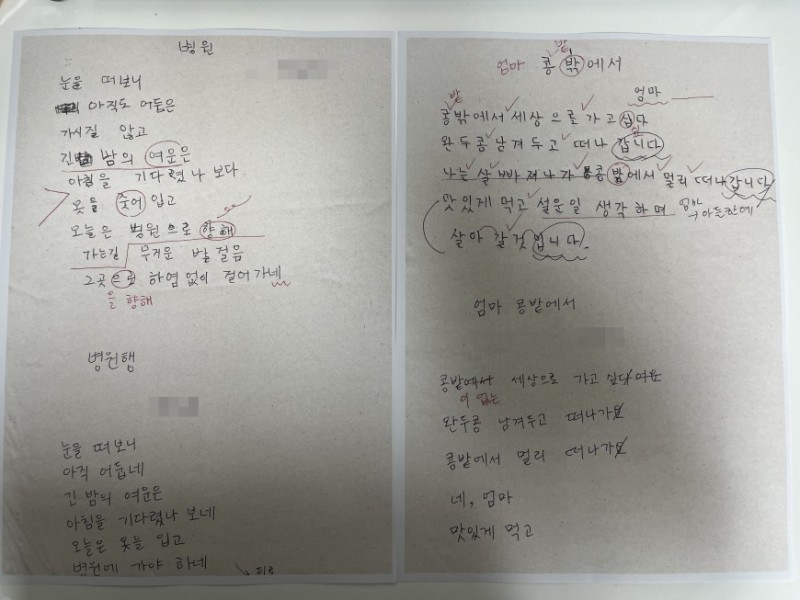 병원
눈을 떠보니
아직도 어둠은
가시질 않고
긴 밤의 여운은
아침을 기다렸나 보다
옷을 줏어 입고
오늘은 병원으로 향해
가는길 무거운 발걸음
그곳으로 하염없이 걸어가네
을 향해
병원행
눈을 떠보니
아직 어둡네
긴 밤의 여운은
아침을 기다렸나 보네
오늘은 옷을 입고
병원에 가야 하네
밭
엄마 콩밖에서
엄마
밭
콩밖에서 세상으로 가고 십다
싶
완두콩 남겨 두고 떠나 갑니다
나는 살 빠져나가 콩밖에서 멀리 떠나갑니다
맛있게 먹고 설운일 생각하며
살아 갈 것 입니다.
엄마 콩밭에서
콩밭에서 세상으로 가고 싶다 여요
이 없는
완두콩 남겨두고 떠나가요
콩밭에서 멀리 떠나가요
네, 엄마
맛있게 먹고